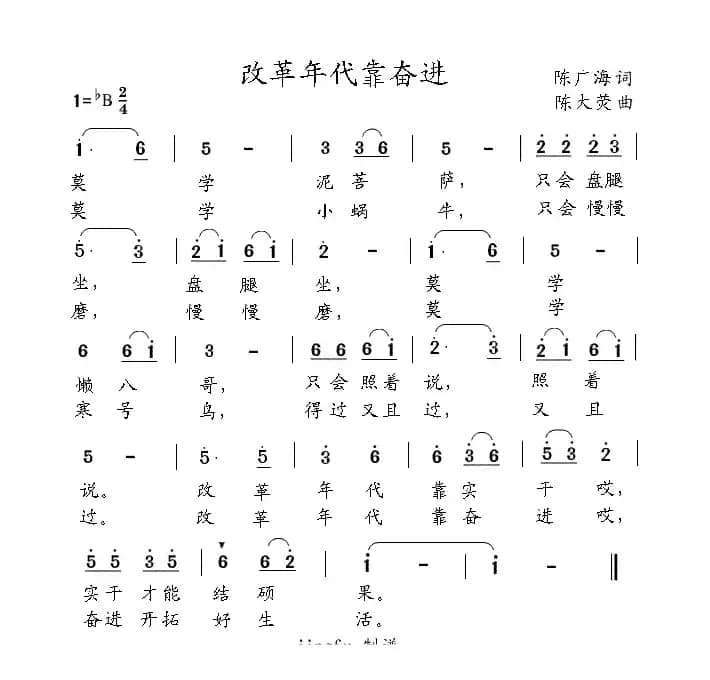 改革年代靠奋进
陈广海词
1=♭B 2/4
陈大荧曲
i· 6 | 5 - | 3 3 6 | 5 - | 2 2 2 3 |
莫 学 泥 菩 萨， 只会盘腿
莫 学 小 蜗 牛， 只会慢慢
5· 3 | 2 i 6 i | 2 - | i· 6 | 5 - |
坐， 盘 腿 坐， 莫 学
磨， 慢 慢 磨， 莫 学
6 6 i | 3 - | 6 6 6 i | 2· 3 | 2 i 6 i |
懒 八 哥， 只会照着 说， 照 着
寒 号 鸟， 得过又且 过， 又 且
5 - | 5· 5 | 3 6 | 6 3 6 | 5 3 2 |
说。 改 革 年 代 靠 实 干 哎，
过。 改 革 年 代 靠 奋 进 哎，
5 5 3 5 | 6 6 2 | i - | i - ‖
实干 才能 结 硕 果。
奋进 开拓 好 生 活。